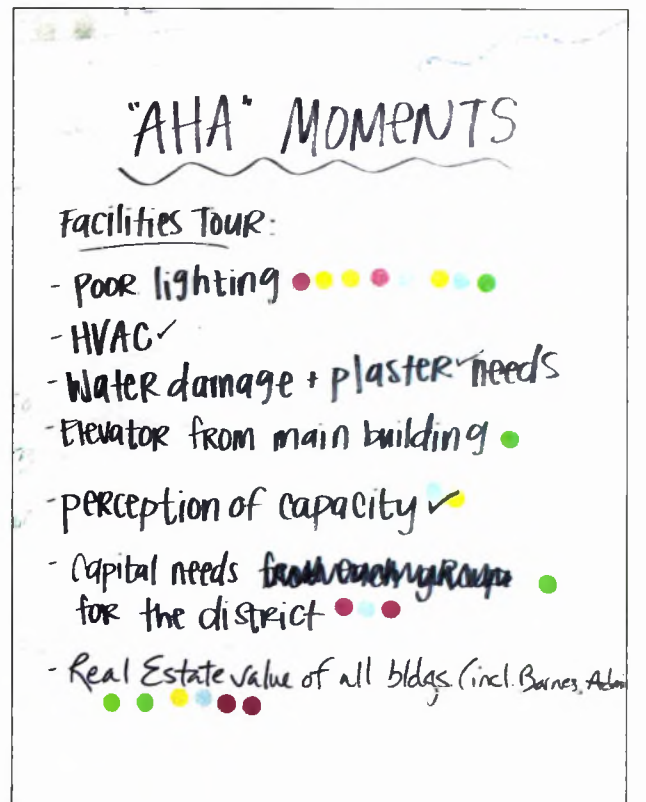 "AHA" MOMENTS
Facilities Tour:
- Poor lighting
- HVAC ✓
- Water damage + plaster ✓ needs
- Elevator from main building
- perception of capacity ✓
- Capital needs
for the district
- Real Estate value of all bldgs (incl. Barnes,